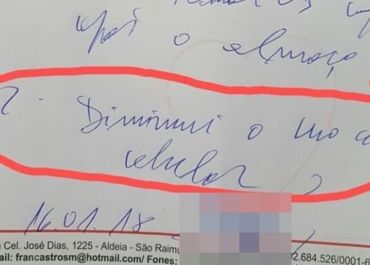 após o almoço
2. Diminui o uso d
celular
16.01.18
a Cel. José Dias, 1225 - Aldeia - São Raimu
il: francastrosm@hotmail.com/ Fones:
)2.684.526/0001-6